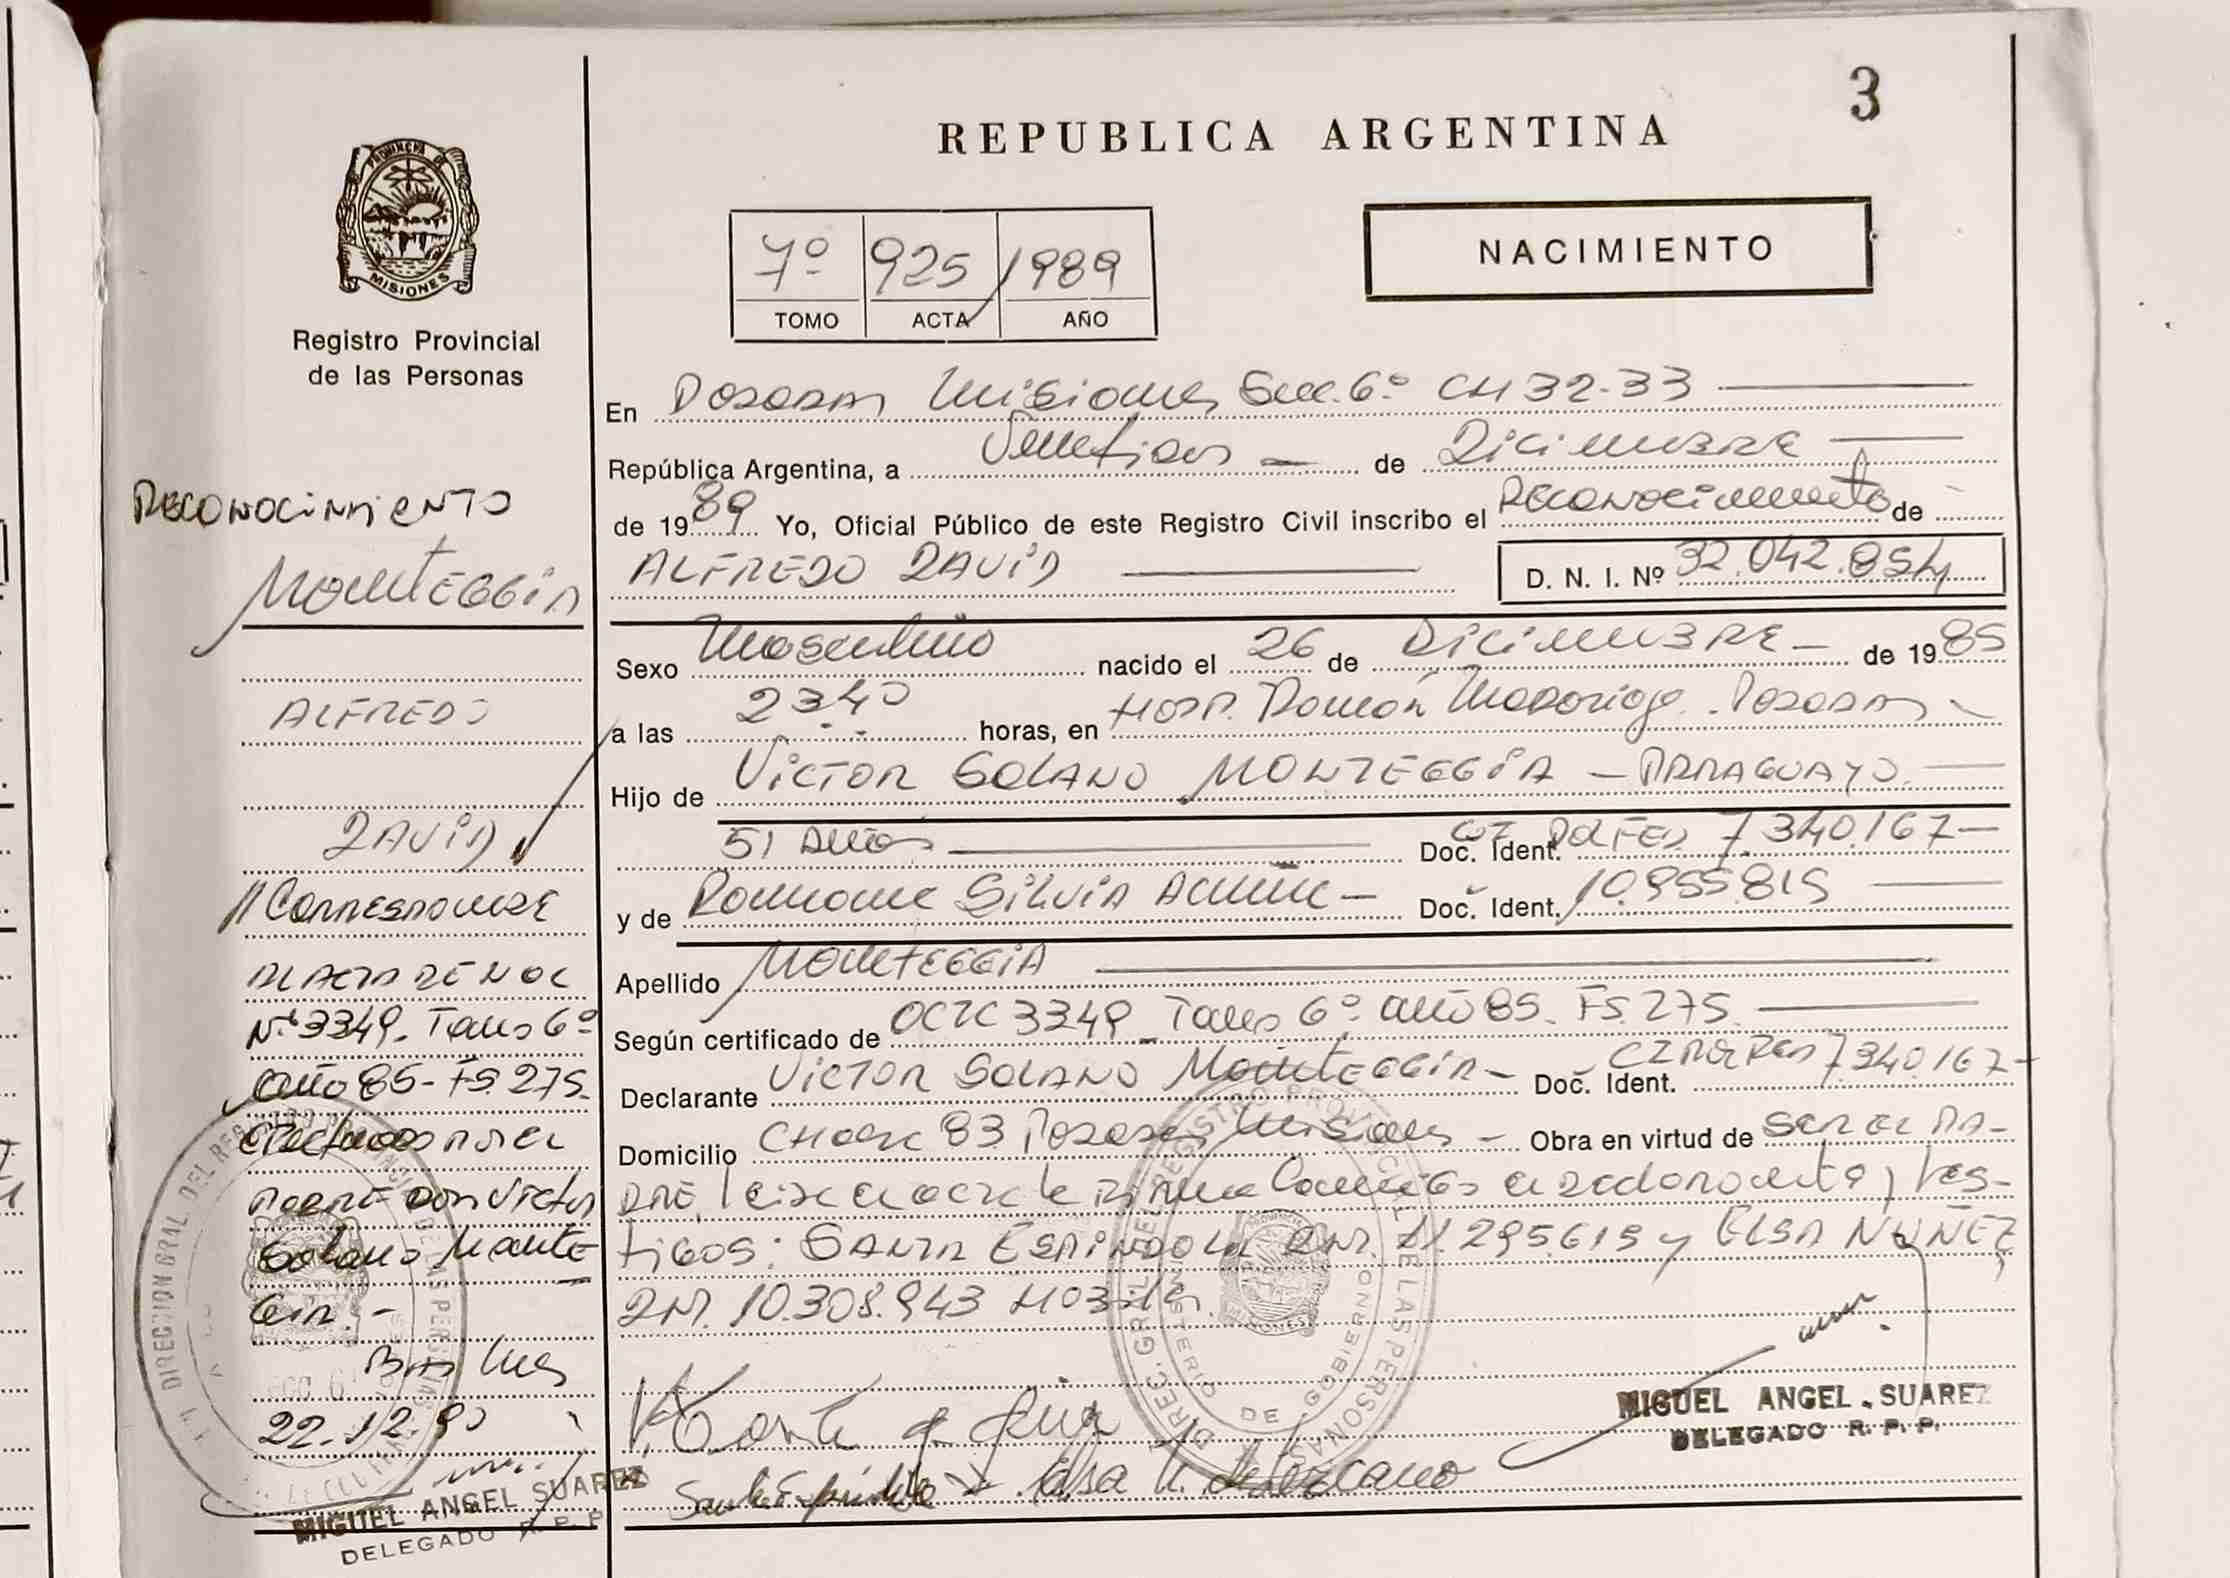 3
REPUBLICA ARGENTINA
PROVINCIA DE
MISIONES
Registro Provincial
de las Personas
7º 925 1989
TOMO ACTA AÑO
NACIMIENTO
En Posadas Misiones Secc. 6º CH 32-33
República Argentina, a de Diciembre
de 1989 Yo, Oficial Público de este Registro Civil inscribo el Reconocimiento de
ALFREDO DAVID
D. N. I. Nº 32.042.854
Sexo Masculino nacido el 26 de Diciembre de 1985
a las 23.40 horas, en Hosp. Ramón Madariaga Posadas
Hijo de VICTOR SOLANO MONTEGGIA - PARAGUAYO
51 años Doc. Ident. CI Pol Fed. 7.340.167
y de Silvia Doc. Ident. 10.955.815
Apellido MONTEGGIA
Según certificado de acta 3349 Tomo 6º año 85. Fs. 275
Declarante VICTOR SOLANO MONTEGGIA Doc. Ident. CI Pol Fed 7.340.167
Domicilio Chacra 83 Posadas Misiones Obra en virtud de ser el pa-
dre, y tes-
tigos: SANTA ESPINDOLA DNI. 11.295.615 y ELSA NUÑEZ
DNI. 10.308.943
MIGUEL ANGEL SUAREZ
DELEGADO R. P. P.
RECONOCIMIENTO
MONTEGGIA
ALFREDO
DAVID
// Corresponde
al acta de nac
Nº 3349. Tomo 6º
año 85 - Fs. 275.
efectuado por el
padre don Victor
Solano Monte
gia. -
22.12.
MIGUEL ANGEL SUAREZ
DELEGADO R. P. P.
DIRECCION GRAL. DEL REGISTRO PROVINCIAL DE LAS PERSONAS
DIREC. GRAL. DEL REGISTRO PROVINCIAL DE LAS PERSONAS
MINISTERIO DE GOBIERNO